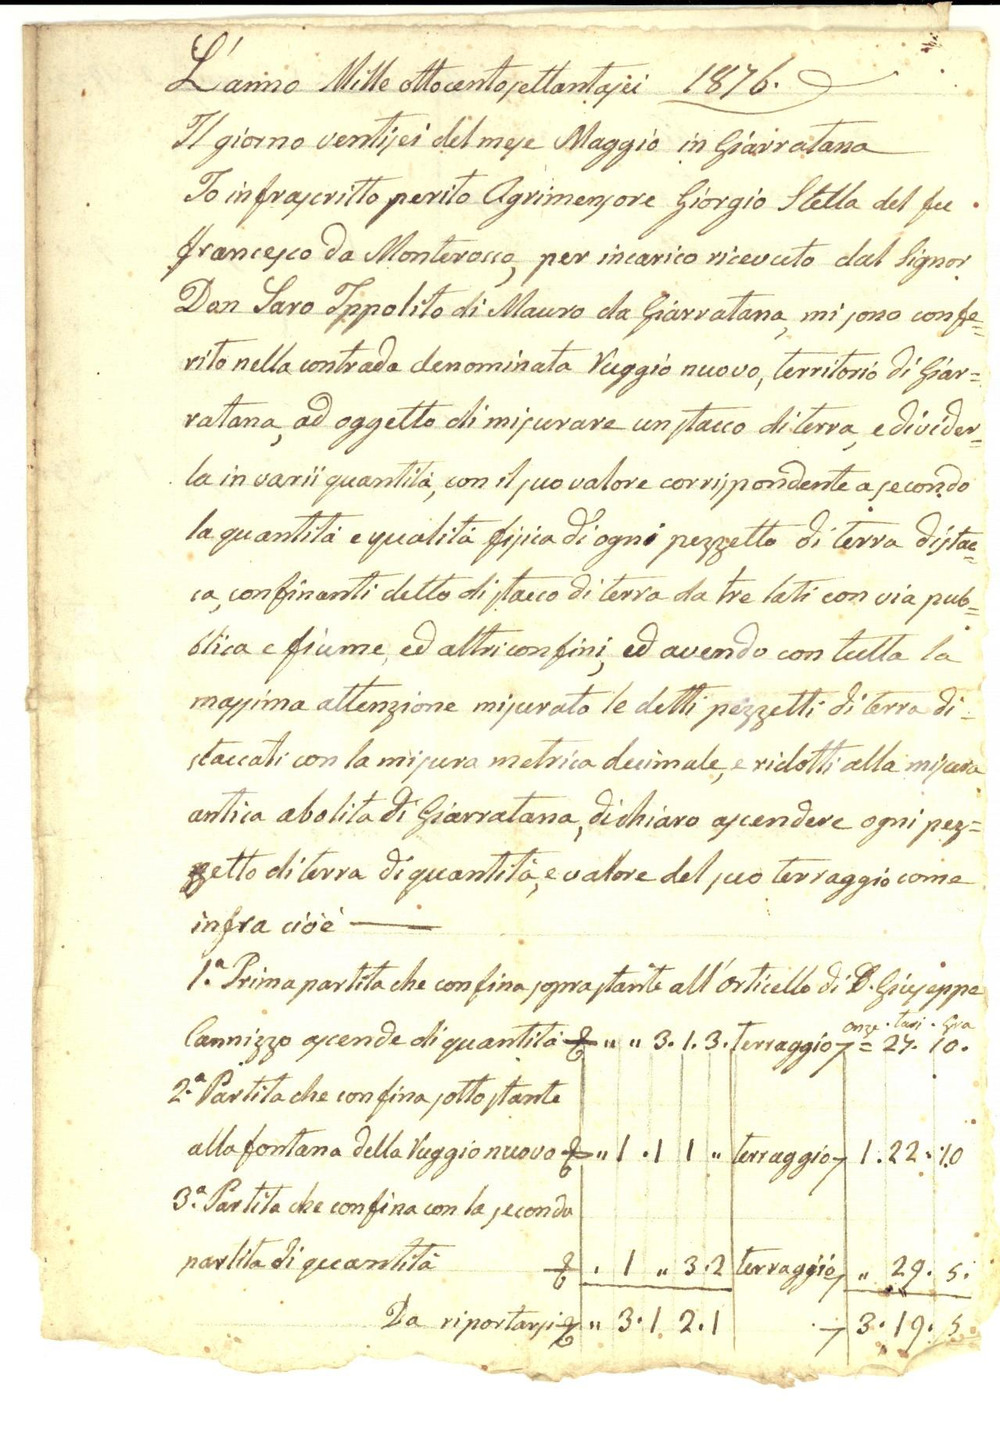 L'anno Mille ottocentosettantasei 1876.
Il giorno ventisei del mese Maggio in Giarratana
Io infrascritto perito Agrimensore Giorgio Stella del fu
Francesco da Monterosso, per incarico ricevuto dal Signor
Don Saro Ippolito di Mauro da Giarratana, mi sono confe=
rito nella contrada denominata Vuggio nuovo, territorio di Giar=
ratana, ad oggetto di misurare un stacco di terra, e divider=
la in varii quantità, con il suo valore corrispondente a secondo
la quantità e qualità fisica d'ogni pezzetto di terra distac=
ca, confinanti detto distacco di terra da tre lati con via pub=
blica e fiume, ed altri confini, ed avendo con tutta la
massima attenzione misurato le detti pezzetti di terra di=
staccati con la misura metrica decimale, e ridotti alla misura
antica abolita di Giarratana, dichiaro ascendere ogni pez=
zetto di terra di quantità, e valore del suo terraggio come
infra cioè —
1.ª Prima partita che confina soprastante all'orticello di D. Giuseppe
onze. tarì. gra
Cannizzo ascende di quantità " " 3. 1. 3. terraggio = 27. 10.
2.ª Partita che confina sottostante
alla fontana della Vuggio nuovo " 1 . 1 1 " terraggio 1. 22. 10
3.ª Partita che confina con la seconda
partita di quantità . 1 " 3. 2 terraggio " 29. 5.
Da riportarsi " 3. 1 2. 1 3. 19. 5.